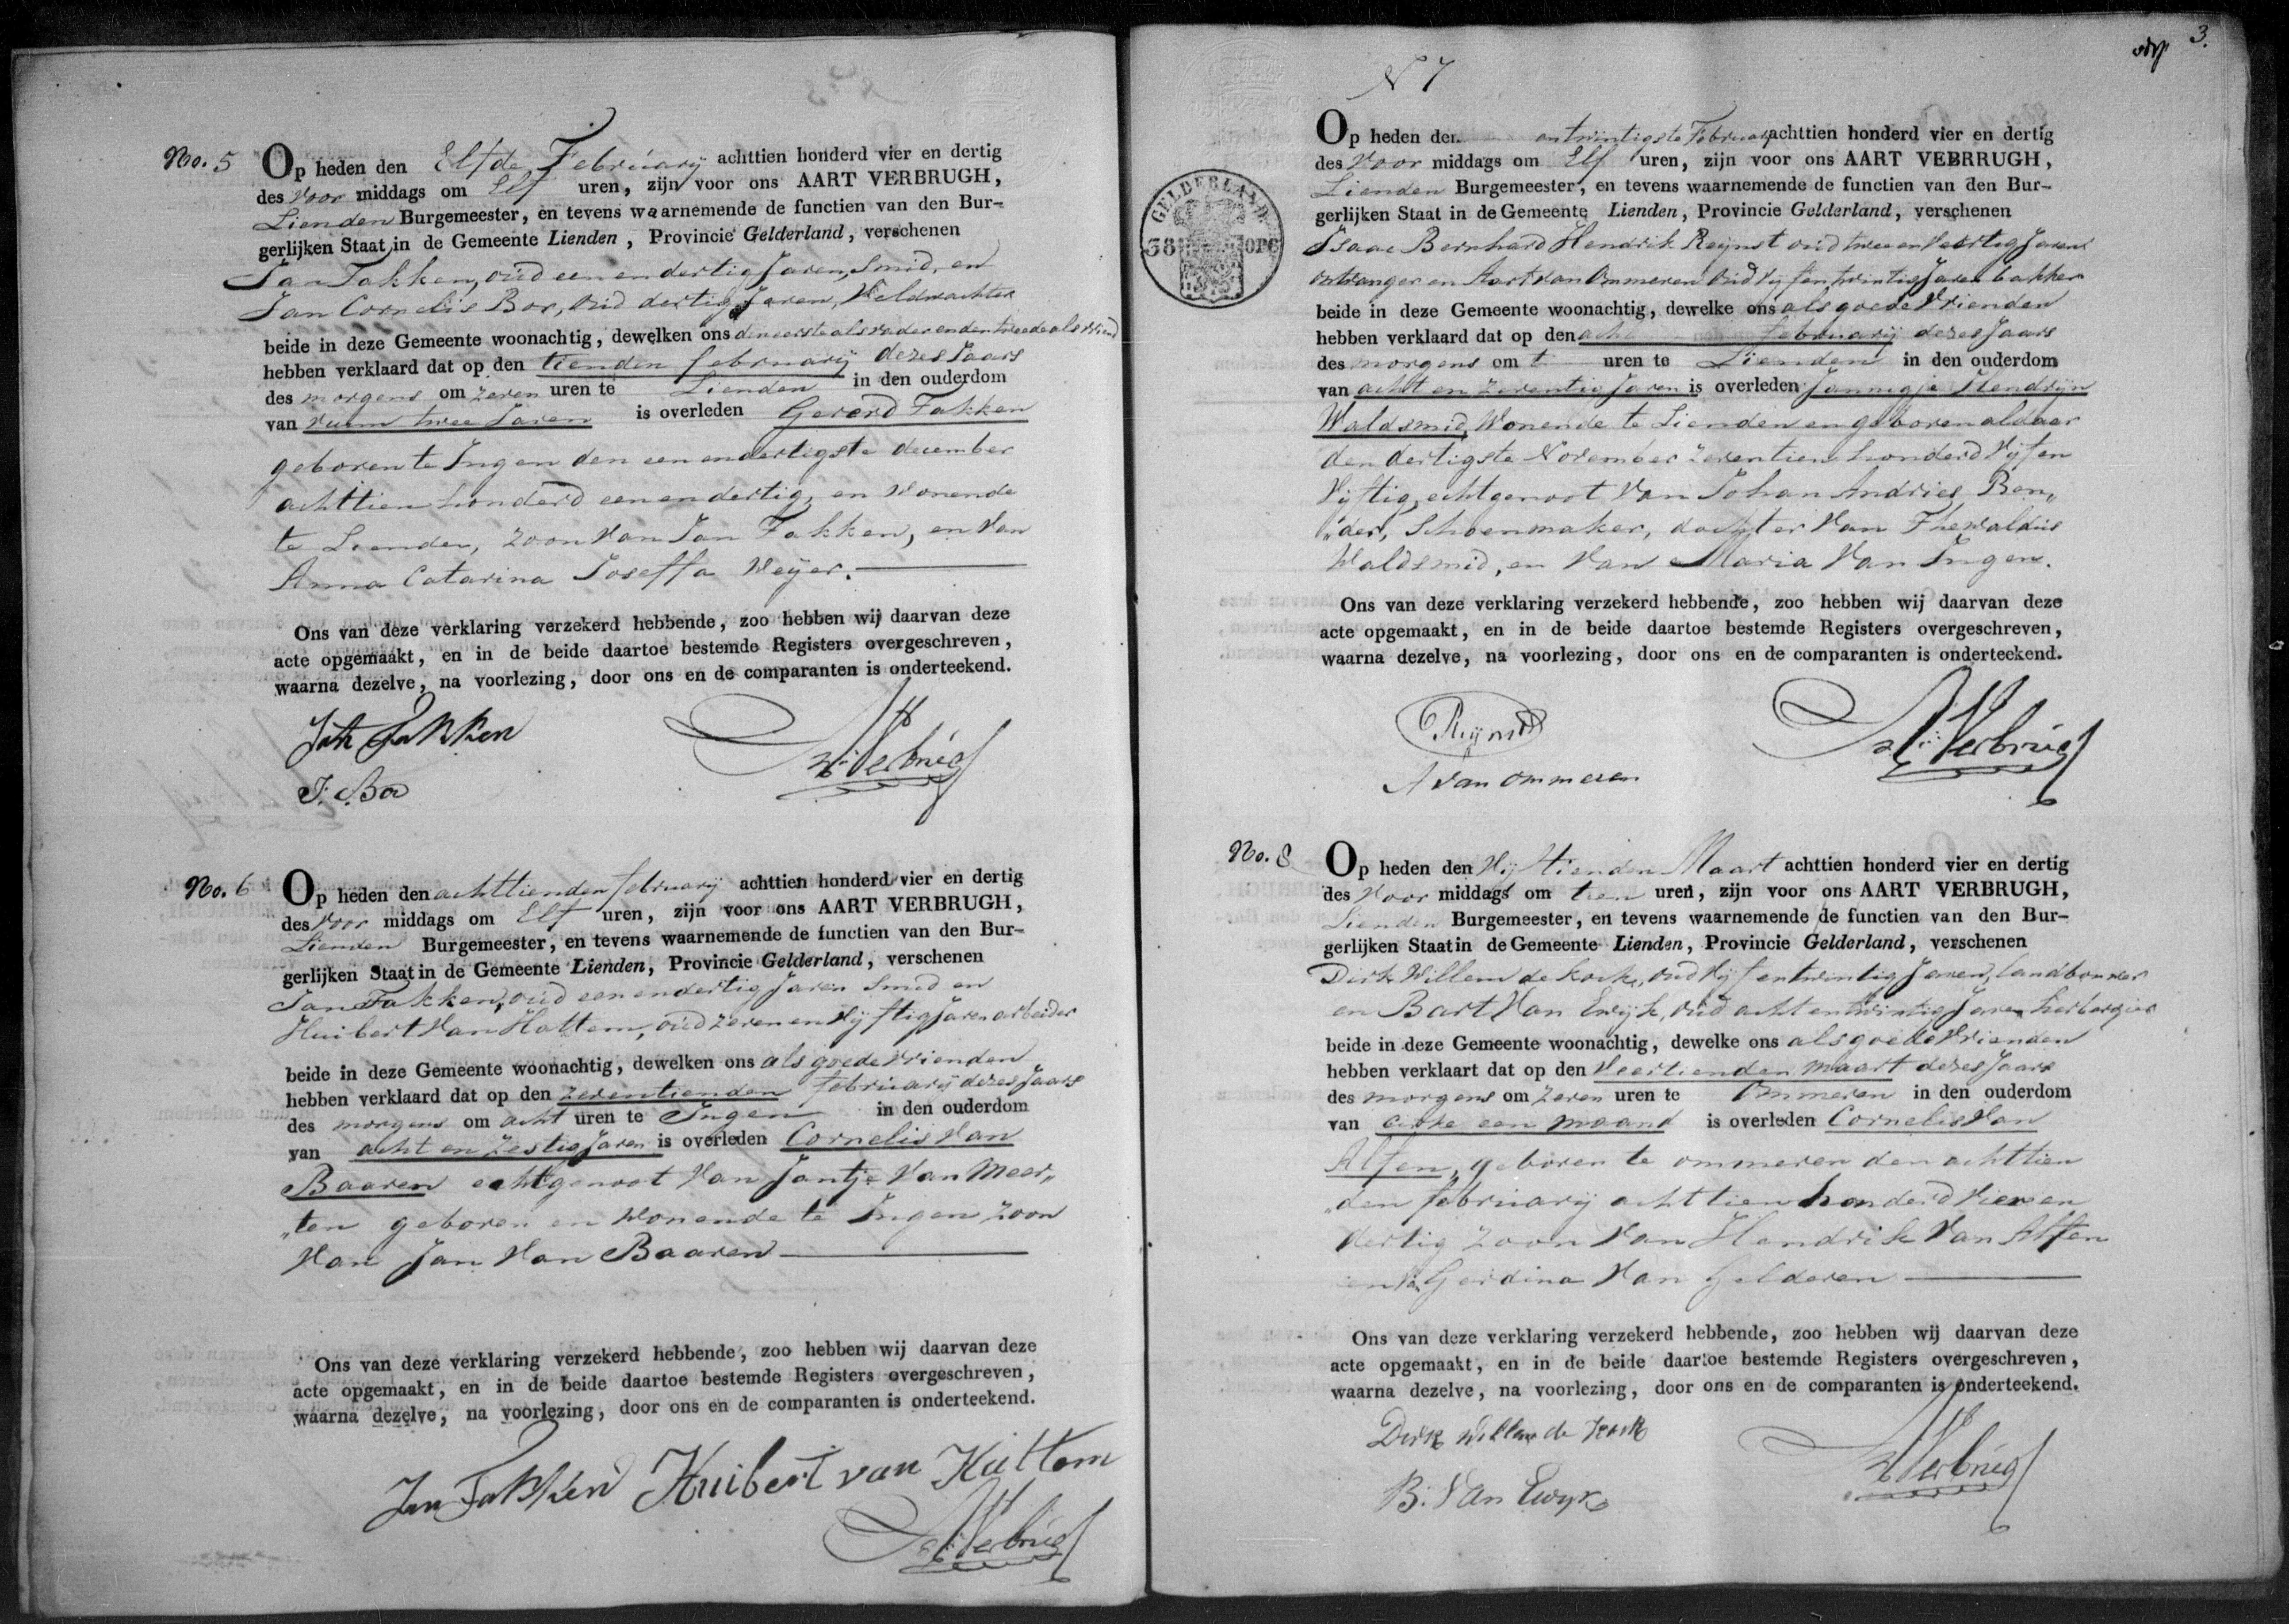 No. 5
Op heden den Elfde February achttien honderd vier en dertig
des Voor middags om Elf uren, zijn voor ons AART VERBRUGH,
Lienden Burgemeester, en tevens waarnemende de functien van den Bur-
gerlijken Staat in de Gemeente Lienden, Provincie Gelderland, verschenen
Jan Fakken, oud een en dertig Jaren, Smid, en
Jan Cornelis Bor, oud dertig Jaren, Veldwachter
beide in deze Gemeente woonachtig, dewelken ons den eerste als vader en den tweede als vriend
hebben verklaard dat op den tienden february dezes Jaars
des morgens om zeven uren te Lienden in den ouderdom
van ruim twee Jaren is overleden Gererd Fakken
geboren te Ingen den een en dertigste december
achttien honderd een en dertig, en Wonende
te Lienden, zoon Van Jan Fakken, en Van
Anna Catarina Joseffa Weyer.
Ons van deze verklaring verzekerd hebbende, zoo hebben wij daarvan deze
acte opgemaakt, en in de beide daartoe bestemde Registers overgeschreven,
waarna dezelve, na voorlezing, door ons en de comparanten is onderteekend.
Jan Fakken
J. Bor
A Verbrugh
No. 6
Op heden den achttienden february achttien honderd vier en dertig
des Voor middags om Elf uren, zijn voor ons AART VERBRUGH,
Lienden Burgemeester, en tevens waarnemende de functien van den Bur-
gerlijken Staat in de Gemeente Lienden, Provincie Gelderland, verschenen
Jan Fakken, oud een en dertig Jaren Smid en
Huibert Van Hattem, oud zeven en Vyftig Jaren arbeider
beide in deze Gemeente woonachtig, dewelken ons als goede Vrienden
hebben verklaard dat op den zeventienden february dezes Jaars
des morgens om acht uren te Ingen in den ouderdom
van acht en zestig Jaren is overleden Cornelis Van
Baaren echtgenoot Van Jantje Van Meer„
„ten geboren en Wonende te Ingen zoon
Van Jan Van Baaren
Ons van deze verklaring verzekerd hebbende, zoo hebben wij daarvan deze
acte opgemaakt, en in de beide daartoe bestemde Registers overgeschreven,
waarna dezelve, na voorlezing, door ons en de comparanten is onderteekend.
Jan Fakken Huibert van Hattem
A Verbrugh
3.
N 7
Op heden den entwintigste February achttien honderd vier en dertig
des Voor middags om Elf uren, zijn voor ons AART VEBRRUGH,
Lienden Burgemeester, en tevens waarnemende de functien van den Bur-
gerlijken Staat in de Gemeente Lienden, Provincie Gelderland, verschenen
GELDERLAND
38 OPC
Isaac Bernhard Hendrik Reynst oud twee en Veertig Jaren
ontvanger en Aart van Ommeren oud vyf en twintig Jaren bakker
beide in deze Gemeente woonachtig, dewelke ons als goede Vrienden
hebben verklaard dat op den february dezes Jaars
des morgens om uren te Lienden in den ouderdom
van acht en zeventig Jaren is overleden Jannigje Hendrijn
Waldsmid, Wonende te Lienden en geboren aldaar
den dertigste November zeventien honderd Vyf en
Vyftig, echtgenoot Van Johan Andries Ben„
„der, Schoenmaker, dochter Van Thewaldus
Waldsmid, en Van Maria Van Ingen.
Ons van deze verklaring verzekerd hebbende, zoo hebben wij daarvan deze
acte opgemaakt, en in de beide daartoe bestemde Registers overgeschreven,
waarna dezelve, na voorlezing, door ons en de comparanten is onderteekend.
Reynst
A van ommeren
A Verbrugh
No. 8
Op heden den Vyftienden Maart achttien honderd vier en dertig
des Voor middags om tien uren, zijn voor ons AART VERBRUGH,
Lienden Burgemeester, en tevens waarnemende de functien van den Bur-
gerlijken Staat in de Gemeente Lienden, Provincie Gelderland, verschenen
Dirk Willem de Kock, oud Vyf en twintig Jaren, landbouwer
en Bart Van Ewyk, oud acht en twintig Jaren herbergier
beide in deze Gemeente woonachtig, dewelke ons als goede Vrienden
hebben verklaart dat op den Veertienden maart dezes Jaars
des morgens om zeven uren te Ommeren in den ouderdom
van cirke een maand is overleden Cornelis Van
Alfen, geboren te ommeren den achttien
„den february achttien honderd vier en
dertig zoon Van Hendrik Van Alfen
en Van Gerdina Van Gelderen
Ons van deze verklaring verzekerd hebbende, zoo hebben wij daarvan deze
acte opgemaakt, en in de beide daartoe bestemde Registers overgeschreven,
waarna dezelve, na voorlezing, door ons en de comparanten is onderteekend.
Dirk Willem de Kock
B. Van Ewyk
A Verbrugh